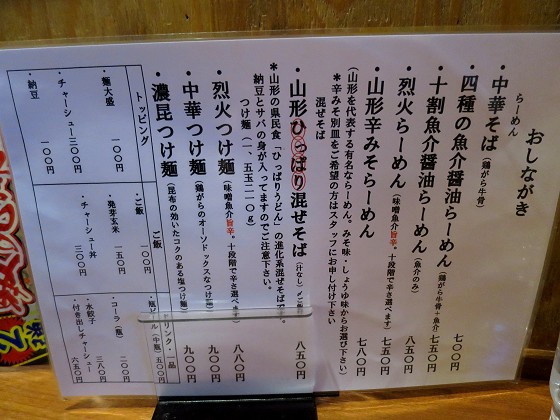 おしながき
らーめん
・中華そば(鶏がら牛骨) 七〇〇円
・四種の魚介醤油らーめん(鶏がら牛骨+魚介) 七五〇円
・十割魚介醤油らーめん(魚介のみ) 八五〇円
・烈火らーめん(味噌魚介旨辛。十段階で辛さ選べます) 七五〇円
・山形辛みそらーめん 七八〇円
(山形を代表する有名ならーめん。みそ味・しょうゆ味からお選び下さい)
*辛みそ別皿をご希望の方はスタッフにお申し付け下さい
混ぜそば
・山形ひっぱり混ぜそば(汁なし) 八五〇円
*山形の県民食「ひっぱりうどん」の進化系混ぜそばです。
納豆とサバの身が入ってますのでご注意下さい。
つけ麺(1、5玉210g)
・烈火つけ麺(味噌魚介旨辛。十段階で辛さ選べます) 八八〇円
・中華つけ麺(鶏がらのオーソドックスなつけ麺) 九〇〇円
・濃昆つけ麺(昆布の効いたコクのある塩つけ麺) 九〇〇円
トッピング
・麺大盛 一〇〇円
・チャーシュー三〇〇円
・納豆 一〇〇円
ご飯
・ご飯 一〇〇円
・発芽玄米 一五〇円
・チャーシュー丼 三〇〇円
ドリンク・一品
・瓶ビール(中瓶)五〇〇円
・コーラ(瓶) 二〇〇円
・水餃子 三八〇円
・付き出しチャーシュー 六五〇円